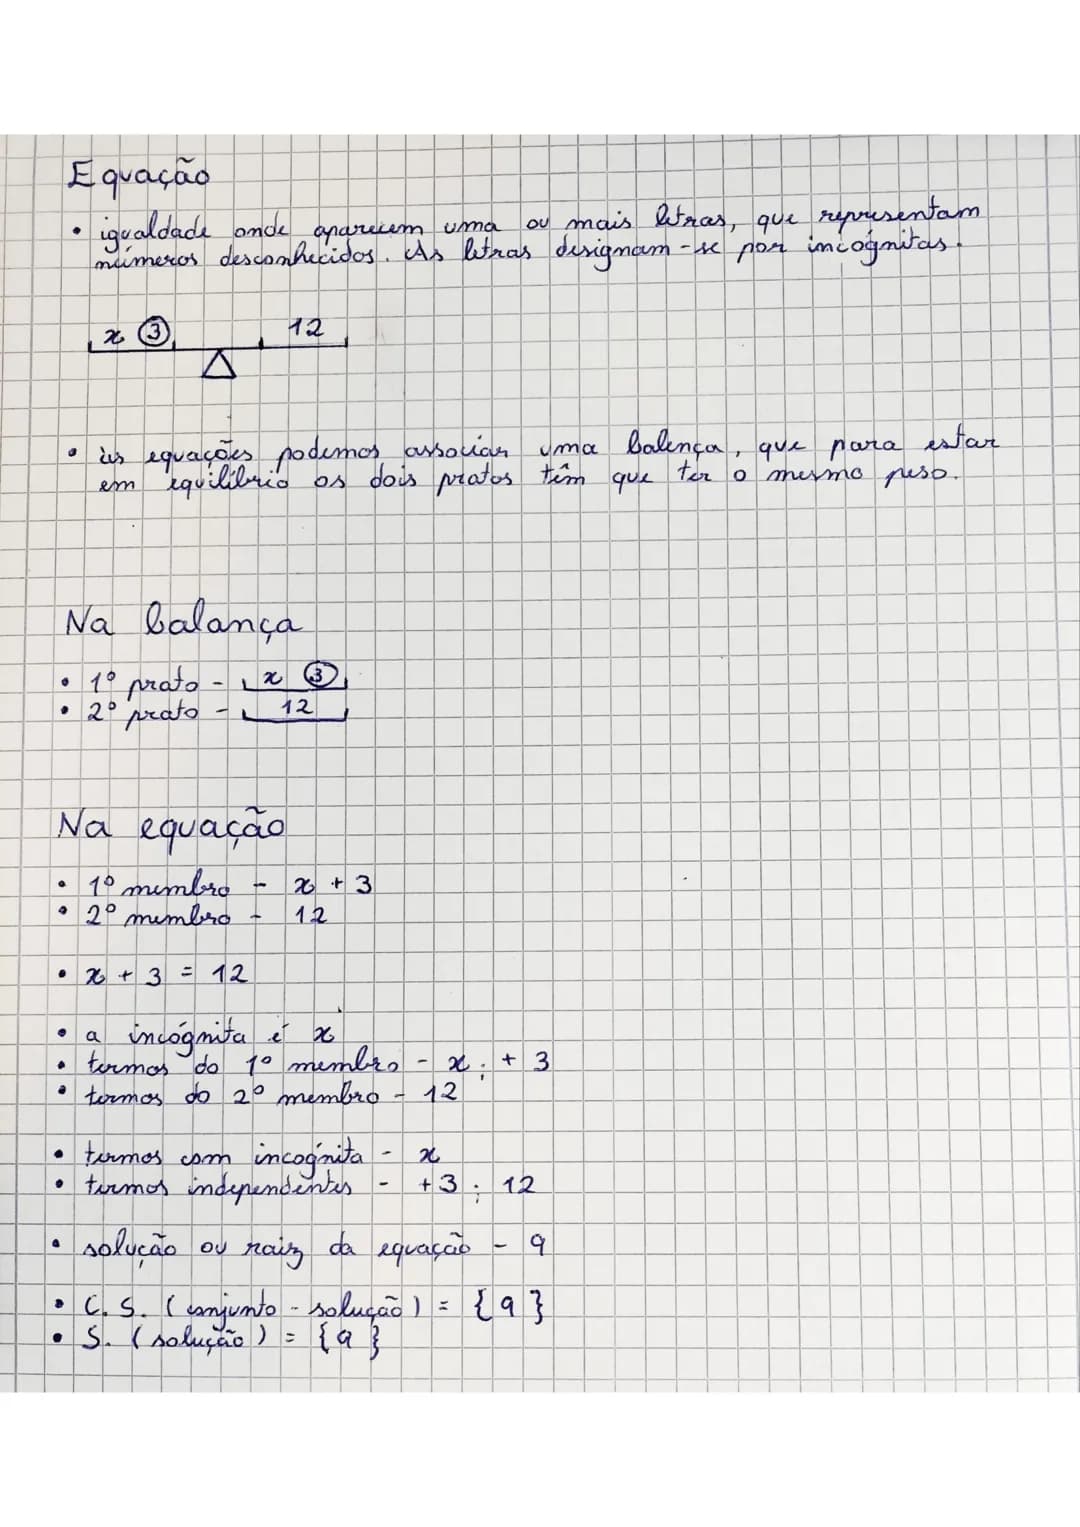 Equação
• igualdade onde aparecem uma ou mais letras, que representam
números desconhecidos. As letras designam-se por incógnitas.
x 3 12
• às equações podemos associar uma balença, que para estar
em equilíbrio os dois pratos têm que ter o mesmo peso.
Na balança
• 1º prato - x 3
• 2º prato - 12
Na equação
• 1º membro - x + 3
• 2º membro - 12
• x + 3 = 12
• a incógnita é x
• termos do 1º membro - x ; + 3
• termos do 2º membro - 12
• termos com incógnita - x
• termos independentes - +3 ; 12
• solução ou raiz da equação - 9
• C. S. (conjunto - solução) = {9}
• S. (solução) = {9}